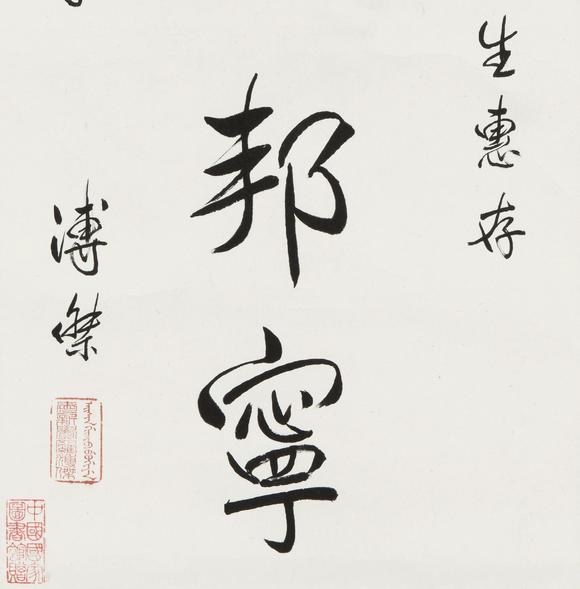 生惠存
邦寧
溥傑
中國國家
圖書館贈